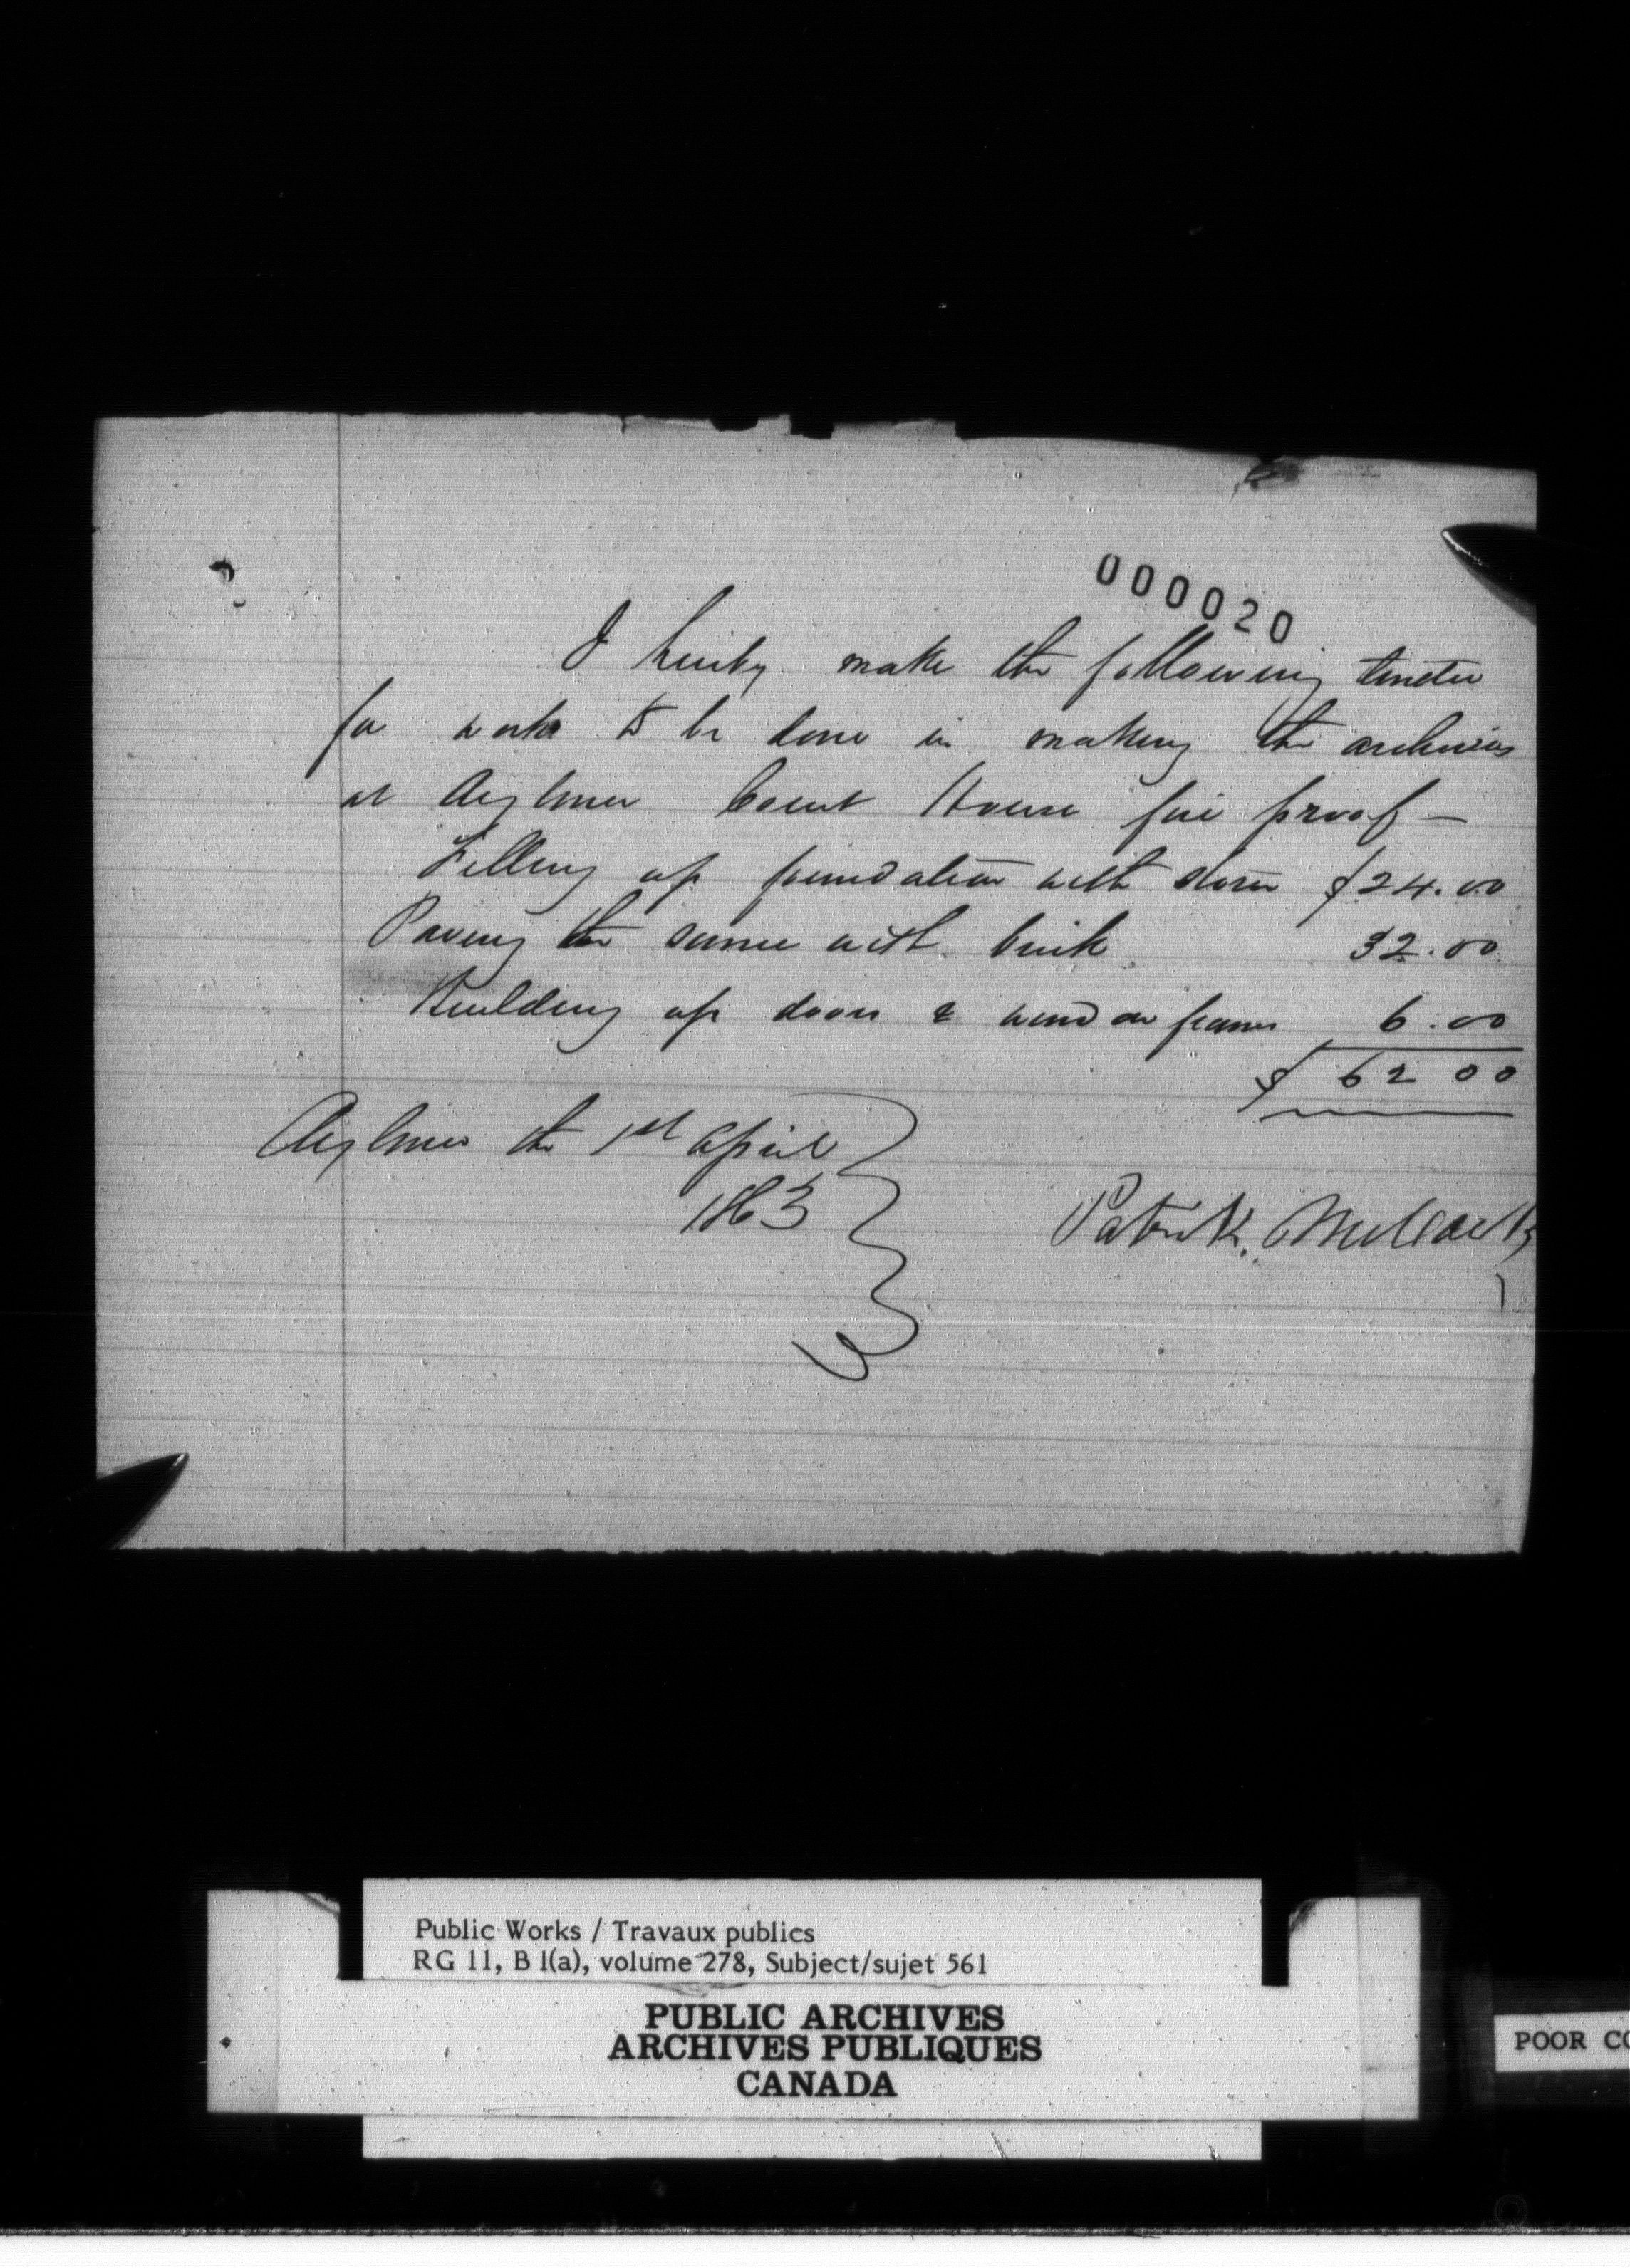 000020
I hereby make the following tender
for work to be done in making the archives
at Aylmer Court House fire proof —
Filling up foundation with stone $24.00
Paving the same with brick 32.00
Building up doors & window frames 6.00
$ 62 00
Aylmer the 1st April
1863
Patrick
Public Works / Travaux publics
RG 11, B 1(a), volume 278, Subject/sujet 561
PUBLIC ARCHIVES
ARCHIVES PUBLIQUES
CANADA
POOR CO